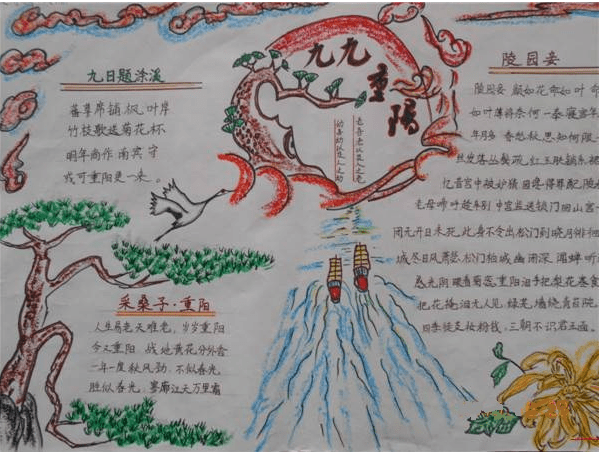 九九重陽
老吾老以及人之老
幼吾幼以及人之幼
九日题涂溪
蕃草席铺枫叶岸
竹枝歌送菊花杯
明年尚作南宾守
或可重阳更一来。
采桑子·重阳
人生易老天难老，岁岁重阳
今又重阳 战地黄花分外香
一年一度秋风劲，不似春光
胜似春光，寥廓江天万里霜
陵园妾
陵园妾 颜如花命如叶 命
如叶薄将奈何 一奉寝宫年
年月多 春愁秋思知何限
丝发落丛鬓疏 红玉肤销系裙
忆昔宫中被妒猜 因谗得罪配陵
老母啼呼趁车别 中官监送锁门回 山宫一
闭无开日未死 此身不令出 松门到晓月徘徊
城尽日风萧瑟 松门柏城幽闭深 闻蝉听
感光阴 眼看菊蕊 重阳泪手把梨花寒食
把花掩泪无人见 绿芜墙绕青苔院
四季徒支妆粉钱，三朝不识君王面。